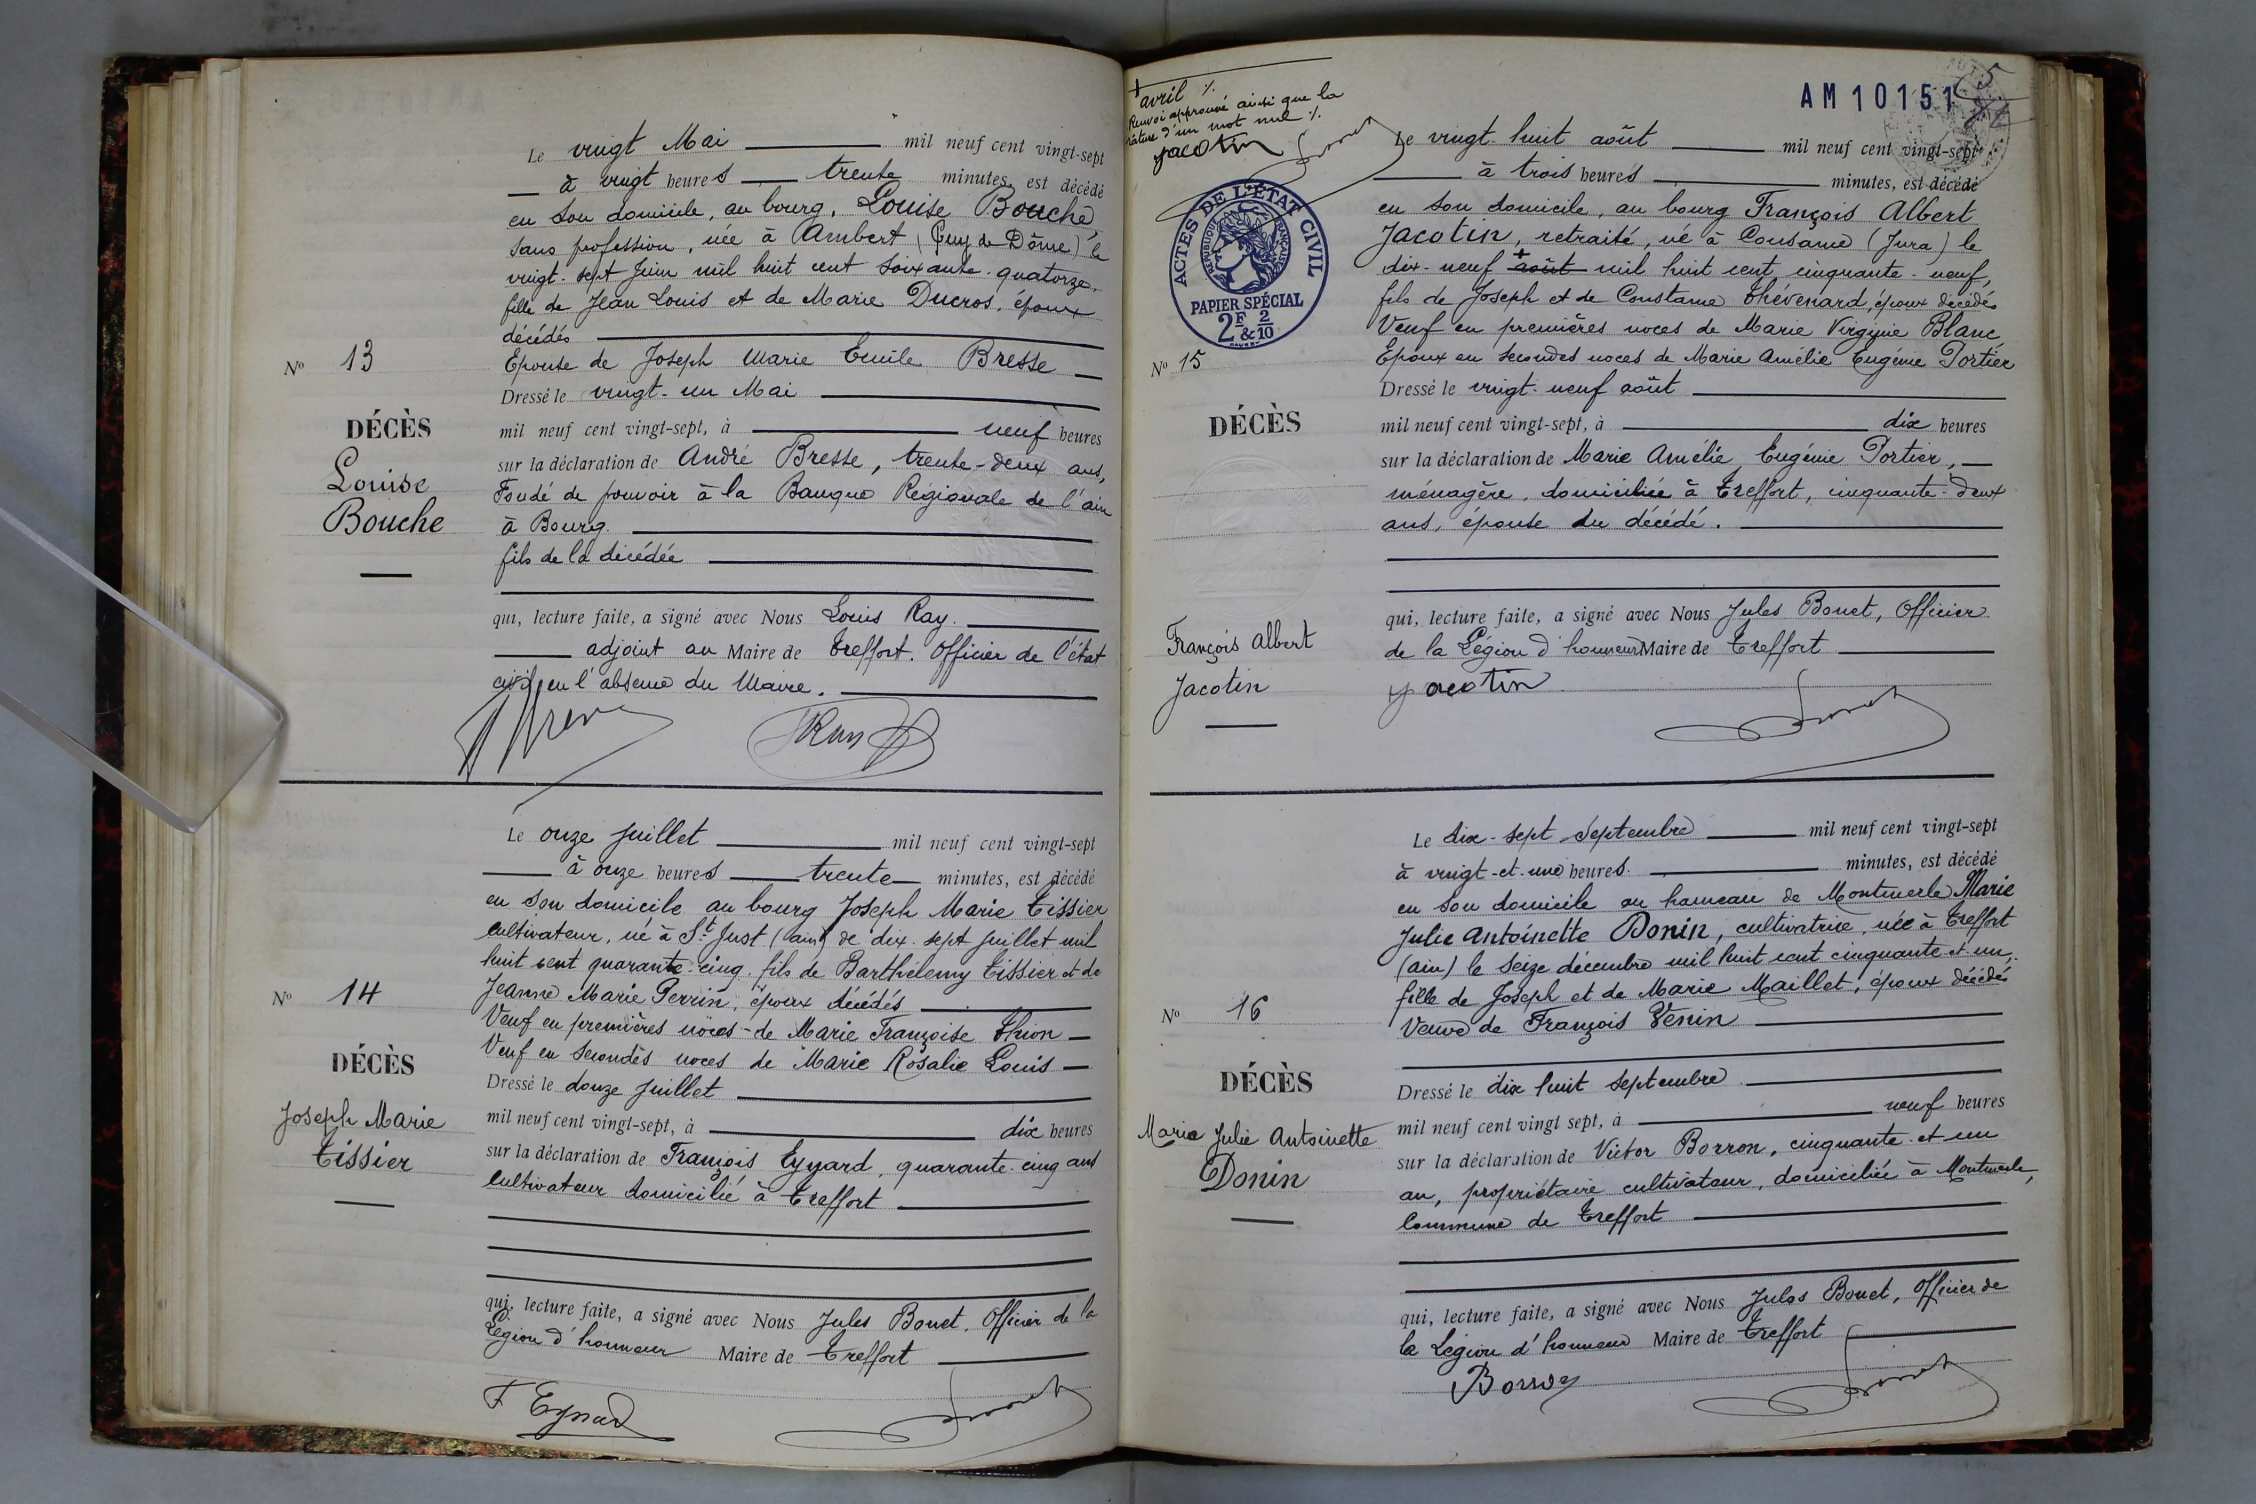 Le vingt Mai mil neuf cent vingt-sept
à vingt heures trente minutes, est décédé
en son domicile, au bourg, Louise Bouche
sans profession, née à Ambert (Puy de Dôme) le
vingt-sept Juin mil huit cent soixante-quatorze,
fille de Jean Louis et de Marie Ducros, époux
décédés
Nº 13
Epouse de Joseph Marie Emile Bresse
Dressé le vingt-un Mai
DÉCÈS
Louise
Bouche
mil neuf cent vingt-sept, à neuf heures
sur la déclaration de André Bresse, trente-deux ans,
Fondé de pouvoir à la Banque Régionale de l'ain
à Bourg.
fils de la décédée
qui, lecture faite, a signé avec Nous Louis Ray.
adjoint au Maire de Treffort. Officier de l'état
civil en l'absence du Maire.
Le onze Juillet mil neuf cent vingt-sept
à onze heures trente minutes, est décédé
en son domicile au bourg Joseph Marie Tissier
cultivateur, né à St Just (ain) de dix-sept Juillet mil
huit cent quarante-cinq, fils de Barthélemy Tissier et de
Jeanne Marie Perrin, époux décédés
Nº 14
Veuf en premières noces de Marie Françoise Thion
Veuf en secondes noces de Marie Rosalie Louis
Dressé le douze Juillet
DÉCÈS
Joseph Marie
Tissier
mil neuf cent vingt-sept, à dix heures
sur la déclaration de François Eynard, quarante-cinq ans
cultivateur domicilié à Treffort
qui, lecture faite, a signé avec Nous Jules Bouet, Officier de la
Légion d'honneur Maire de Treffort
F Eynard
AM10151
5
+ avril ./.
Renvoi approuvé ainsi que la
rature d'un mot nul ./.
Jacotin
ACTES DE L'ÉTAT CIVIL
RÉPUBLIQUE FRANÇAISE
PAPIER SPÉCIAL
2F & 2/10
Le vingt-huit août mil neuf cent vingt-sept
à trois heures minutes, est décédé
en son domicile, au bourg François Albert
Jacotin, retraité, né à Cousance (Jura) le
dix-neuf + août mil huit cent cinquante-neuf,
fils de Joseph et de Constance Thévenard, époux décédés
Veuf en premières noces de Marie Virginie Blanc
Nº 15
Epoux en secondes noces de Marie Amélie Eugénie Portier
Dressé le vingt-neuf août
DÉCÈS
mil neuf cent vingt-sept, à dix heures
sur la déclaration de Marie Amélie Eugénie Portier,
ménagère, domiciliée à Treffort, cinquante-deux
ans, épouse du décédé.
François Albert
Jacotin
qui, lecture faite, a signé avec Nous Jules Bouet, Officier
de la Légion d'honneur Maire de Treffort
Jacotin
Le dix-sept Septembre mil neuf cent vingt-sept
à vingt-et-une heures minutes, est décédé
en son domicile au hameau de Montmerle Marie
Julie Antoinette Donin, cultivatrice, née à Treffort
(ain) le seize décembre mil huit cent cinquante et un,
fille de Joseph et de Marie Maillet, époux décédés
Nº 16
Veuve de François Venin
DÉCÈS
Marie Julie Antoinette
Donin
Dressé le dix huit septembre
mil neuf cent vingt sept, à neuf heures
sur la déclaration de Victor Borron, cinquante-et-un
an, propriétaire cultivateur, domiciliée à Montmerle,
Commune de Treffort
qui, lecture faite, a signé avec Nous Jules Bouet, Officier de
la Légion d'honneur Maire de Treffort
Borron